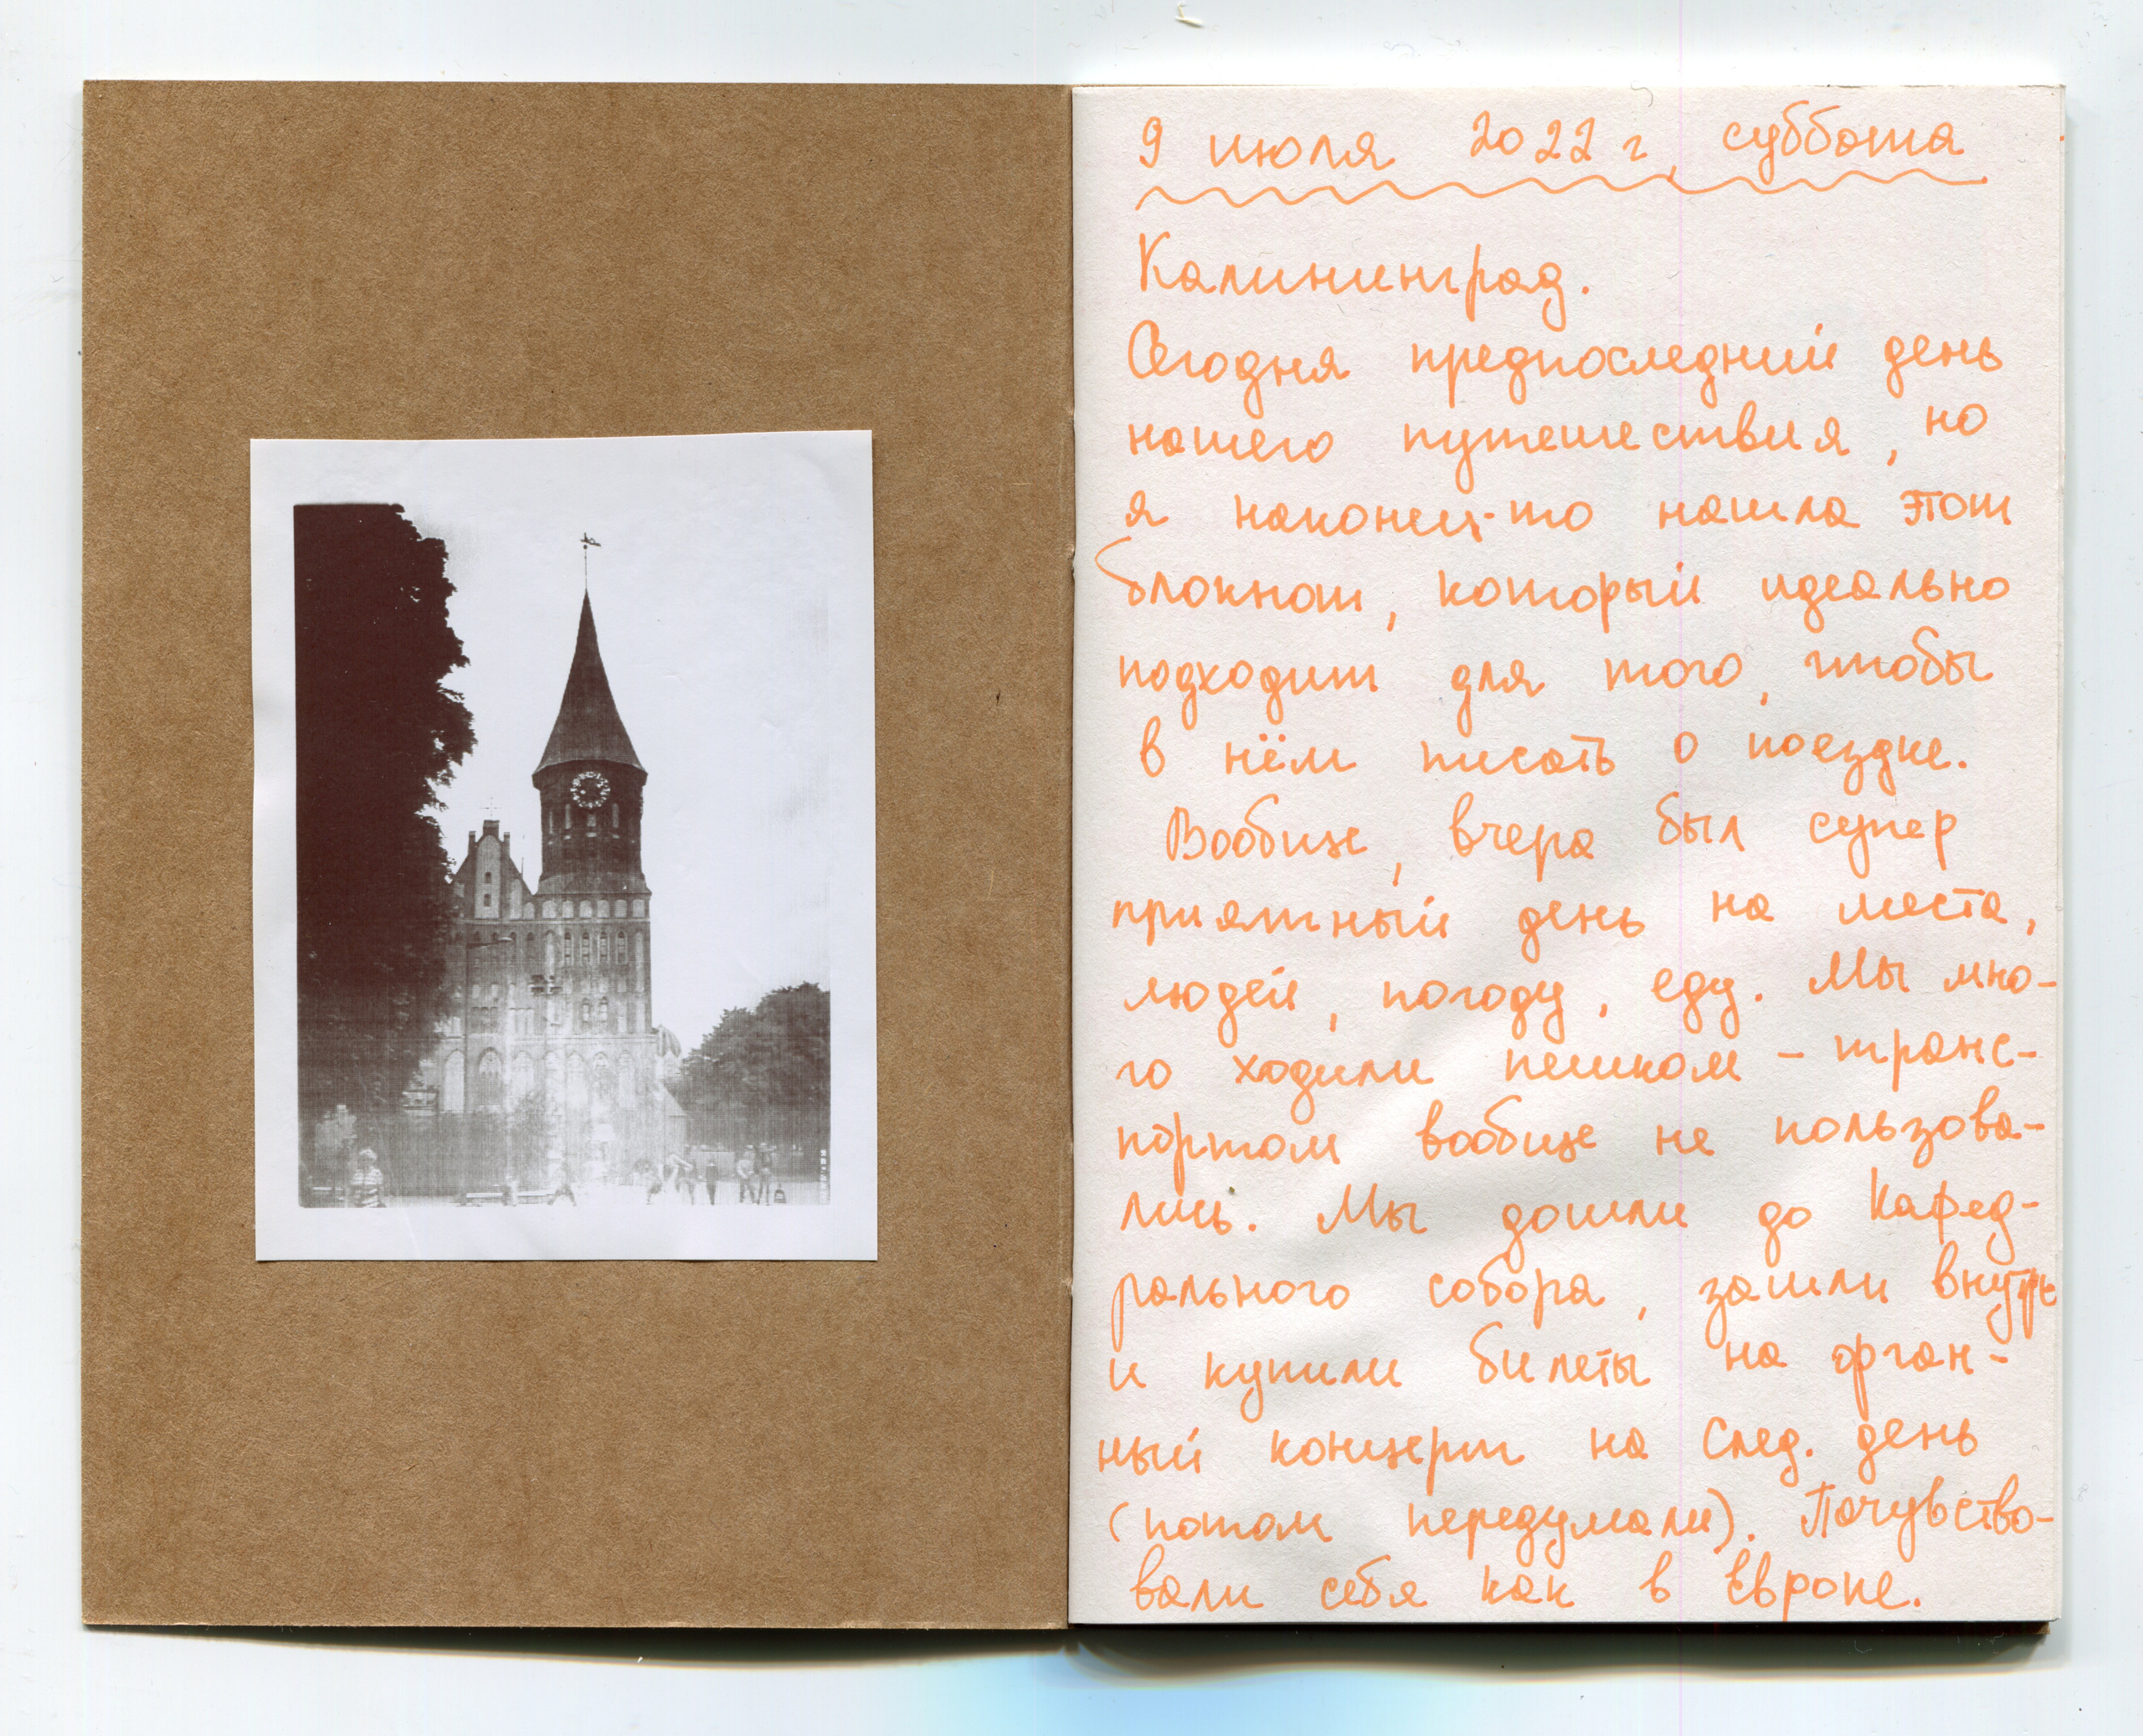 9 июля 2022 г, суббота
Калининград.
Сегодня предпоследний день
нашего путешествия, но
я наконец-то нашла этот
блокнот, который идеально
подходит для того, чтобы
в нём писать о поездке.
Вообще, вчера был супер
приятный день на места,
людей, погоду, еду. Мы мно-
го ходили пешком - транс-
портом вообще не пользова-
лись. Мы дошли до Кафед-
рального собора, зашли внутрь
и купили билеты на орган-
ный концерт на след. день
(потом передумали). Почувство-
вали себя как в Европе.